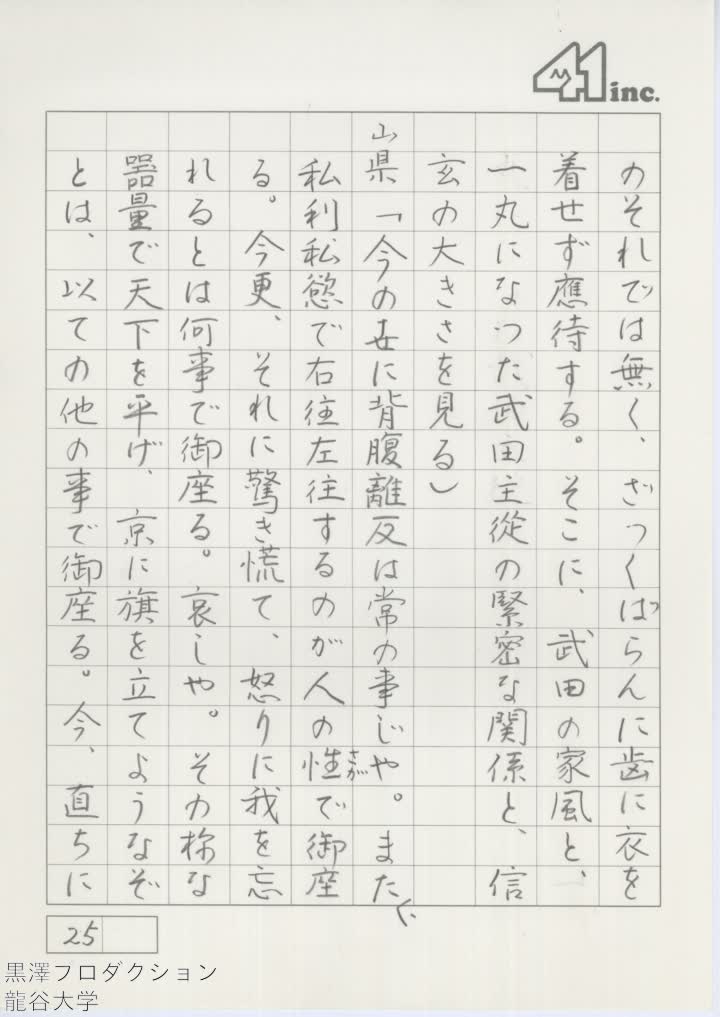 41 inc.
のそれでは無く、ざっくばらんに歯に衣を
着せず應待する。そこに、武田の家風と、
一丸になった武田主從の緊密な関係と、信
玄の大きさを見る）
山県「今の世に背腹離反は常の事じや。また
私利私慾で右往左往するのが人の性で御座
さが
る。今更、それに驚き慌て、怒りに我を忘
れるとは何事で御座る。哀しや。その様な
器量で天下を平げ、京に旗を立てようなぞ
とは、以ての他の事で御座る。今、直ちに
25
黒澤プロダクション
龍谷大学